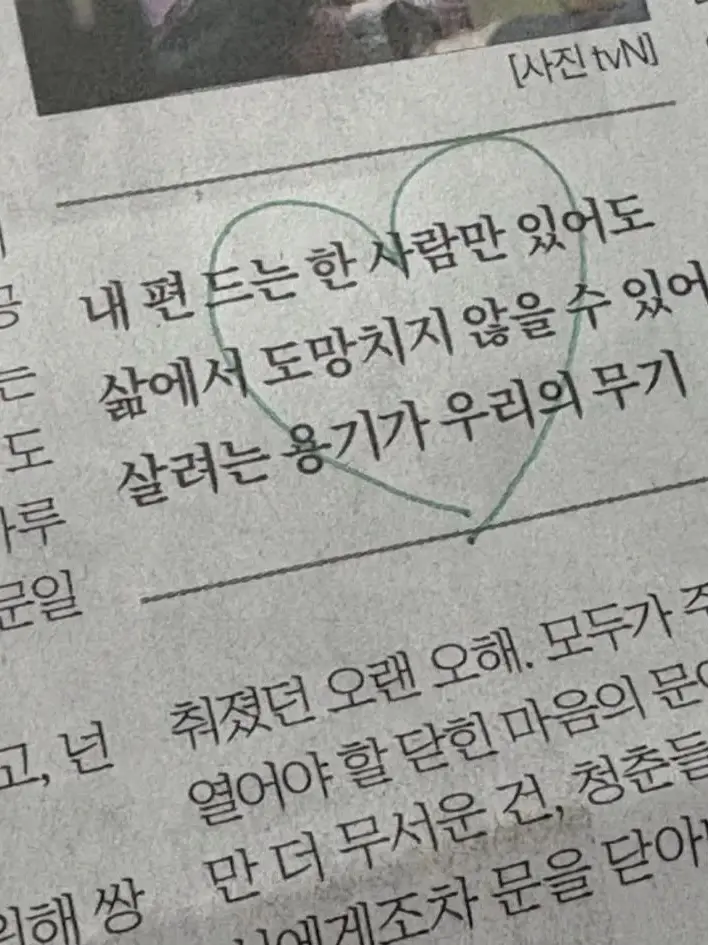 [사진 tvN]
내 편 드는 한 사람만 있어도
삶에서 도망치지 않을 수 있어
살려는 용기가 우리의 무기
는
도
루
문일
고, 넌
위해 쌍
취졌던 오랜 오해. 모두가 주
열어야 할 닫힌 마음의 문
만 더 무서운 건, 청춘들
에게조차 문을 닫아